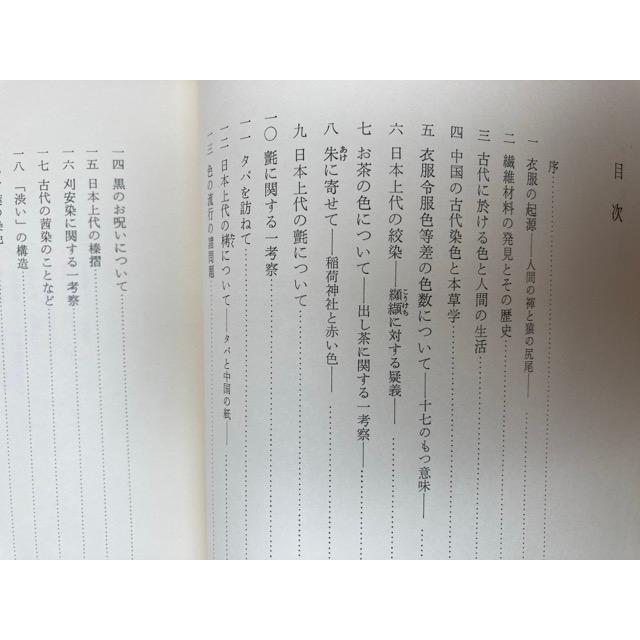 目次
序
一 衣服の起源――人間の褌と猿の尻尾――
二 繊維材料の発見とその歴史
三 古代に於ける色と人間の生活
四 中国の古代染色と本草学
五 衣服令服色等差の色数について――十七のもつ意味――
六 日本上代の絞染――纐纈に対する疑義――
こうけち
七 お茶の色について――出し茶に関する一考察――
八 朱に寄せて――稲荷神社と赤い色――
あけ
九 日本上代の氈について
一〇 氈に関する一考察
一一 タバを訪ねて
一二 日本上代の栲について――タバと中国の紙――
一三 色の流行の諸問題
一四 黒のお呪いについて
一五 日本上代の榛摺
一六 刈安染に関する一考察
一七 古代の茜染のことなど
一八 「渋い」の構造